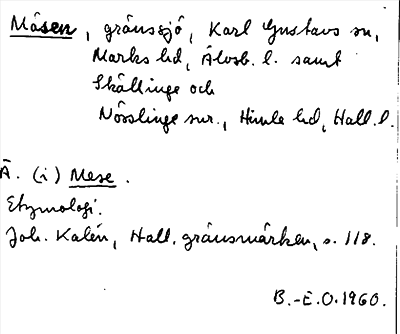 Måsen, gränssjö, Karl Gustavs sn,
Marks hd, Älvsb. l. samt
Skällinge och
Nösslinge snr., Himle hd, Hall. l.
Ä. (i) Mese.
Etymologi.
Joh. Kalén, Hall. gränsmärken, s. 118.
B.-E.O. 1960.